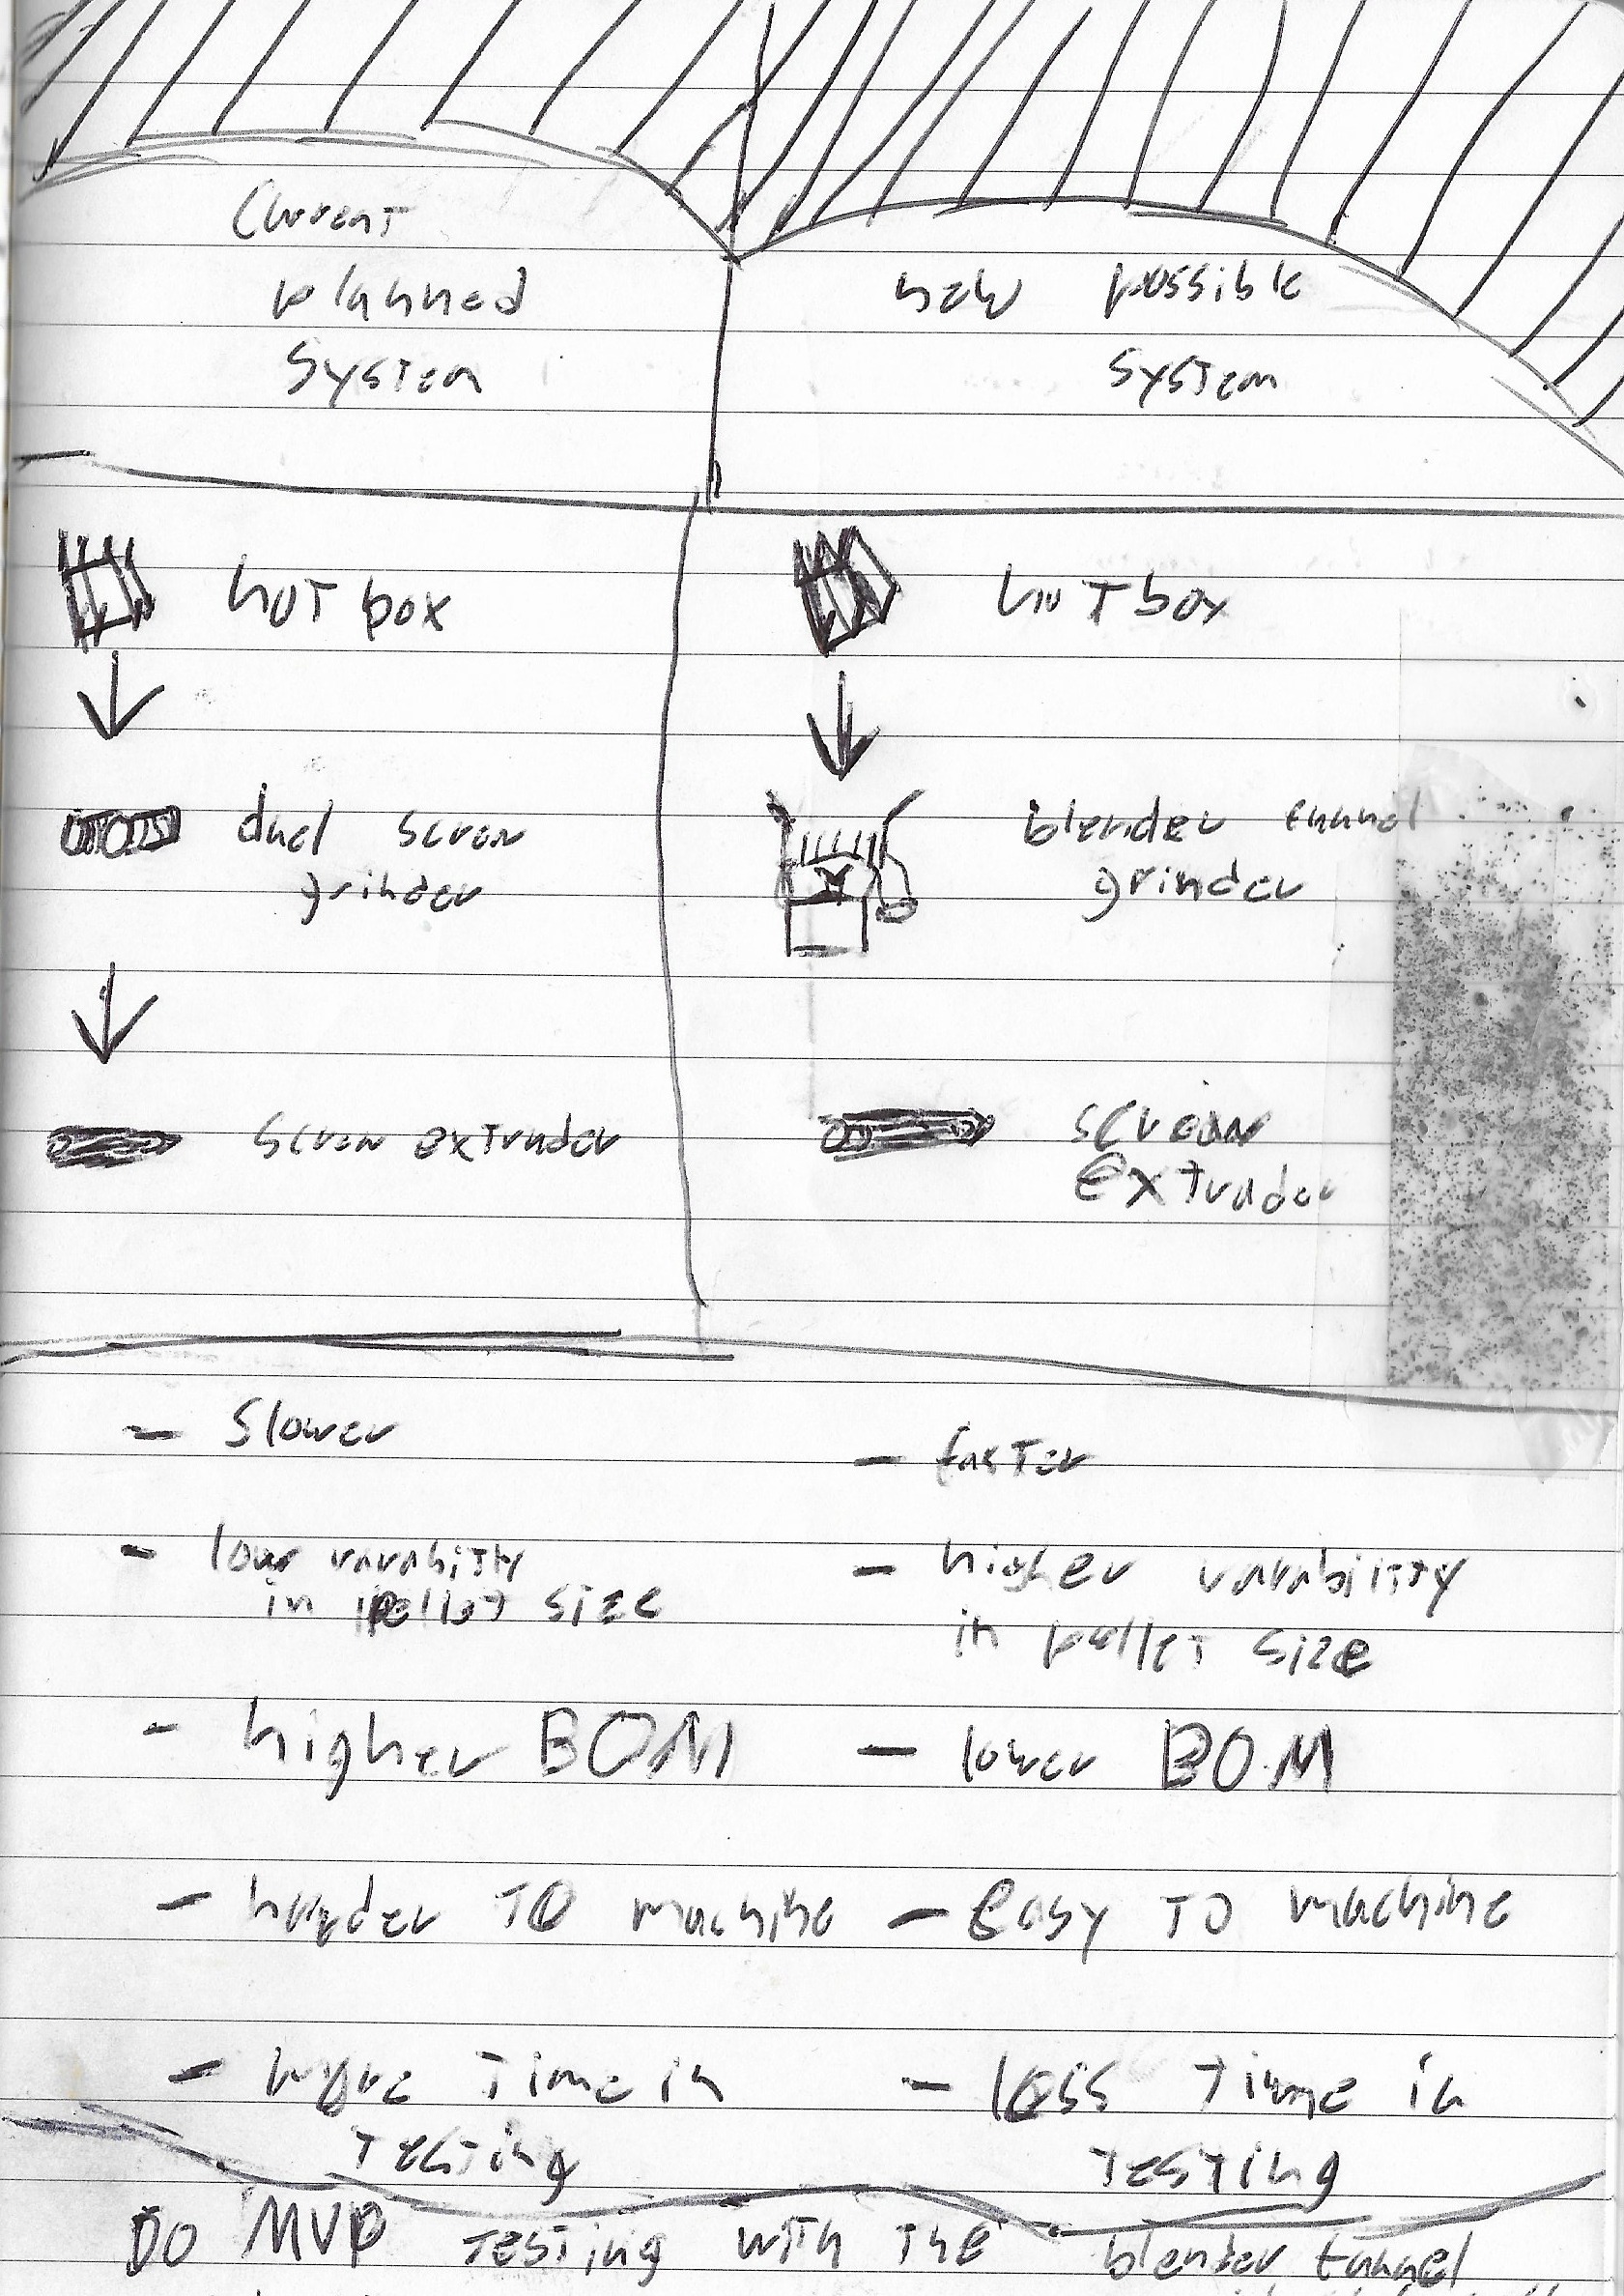 Current
planned
System
new possible
System
hot box
hot box
dual screw
grinder
blender tunnel
grinder
screw extruder
screw
extruder
- Slower
- faster
- low varability
in pellet size
- higher varability
in pellet size
- higher BOM
- lower BOM
- harder to machine
- easy to machine
- more time in
testing
- less time in
testing
Do MVP testing with the blender tunnel